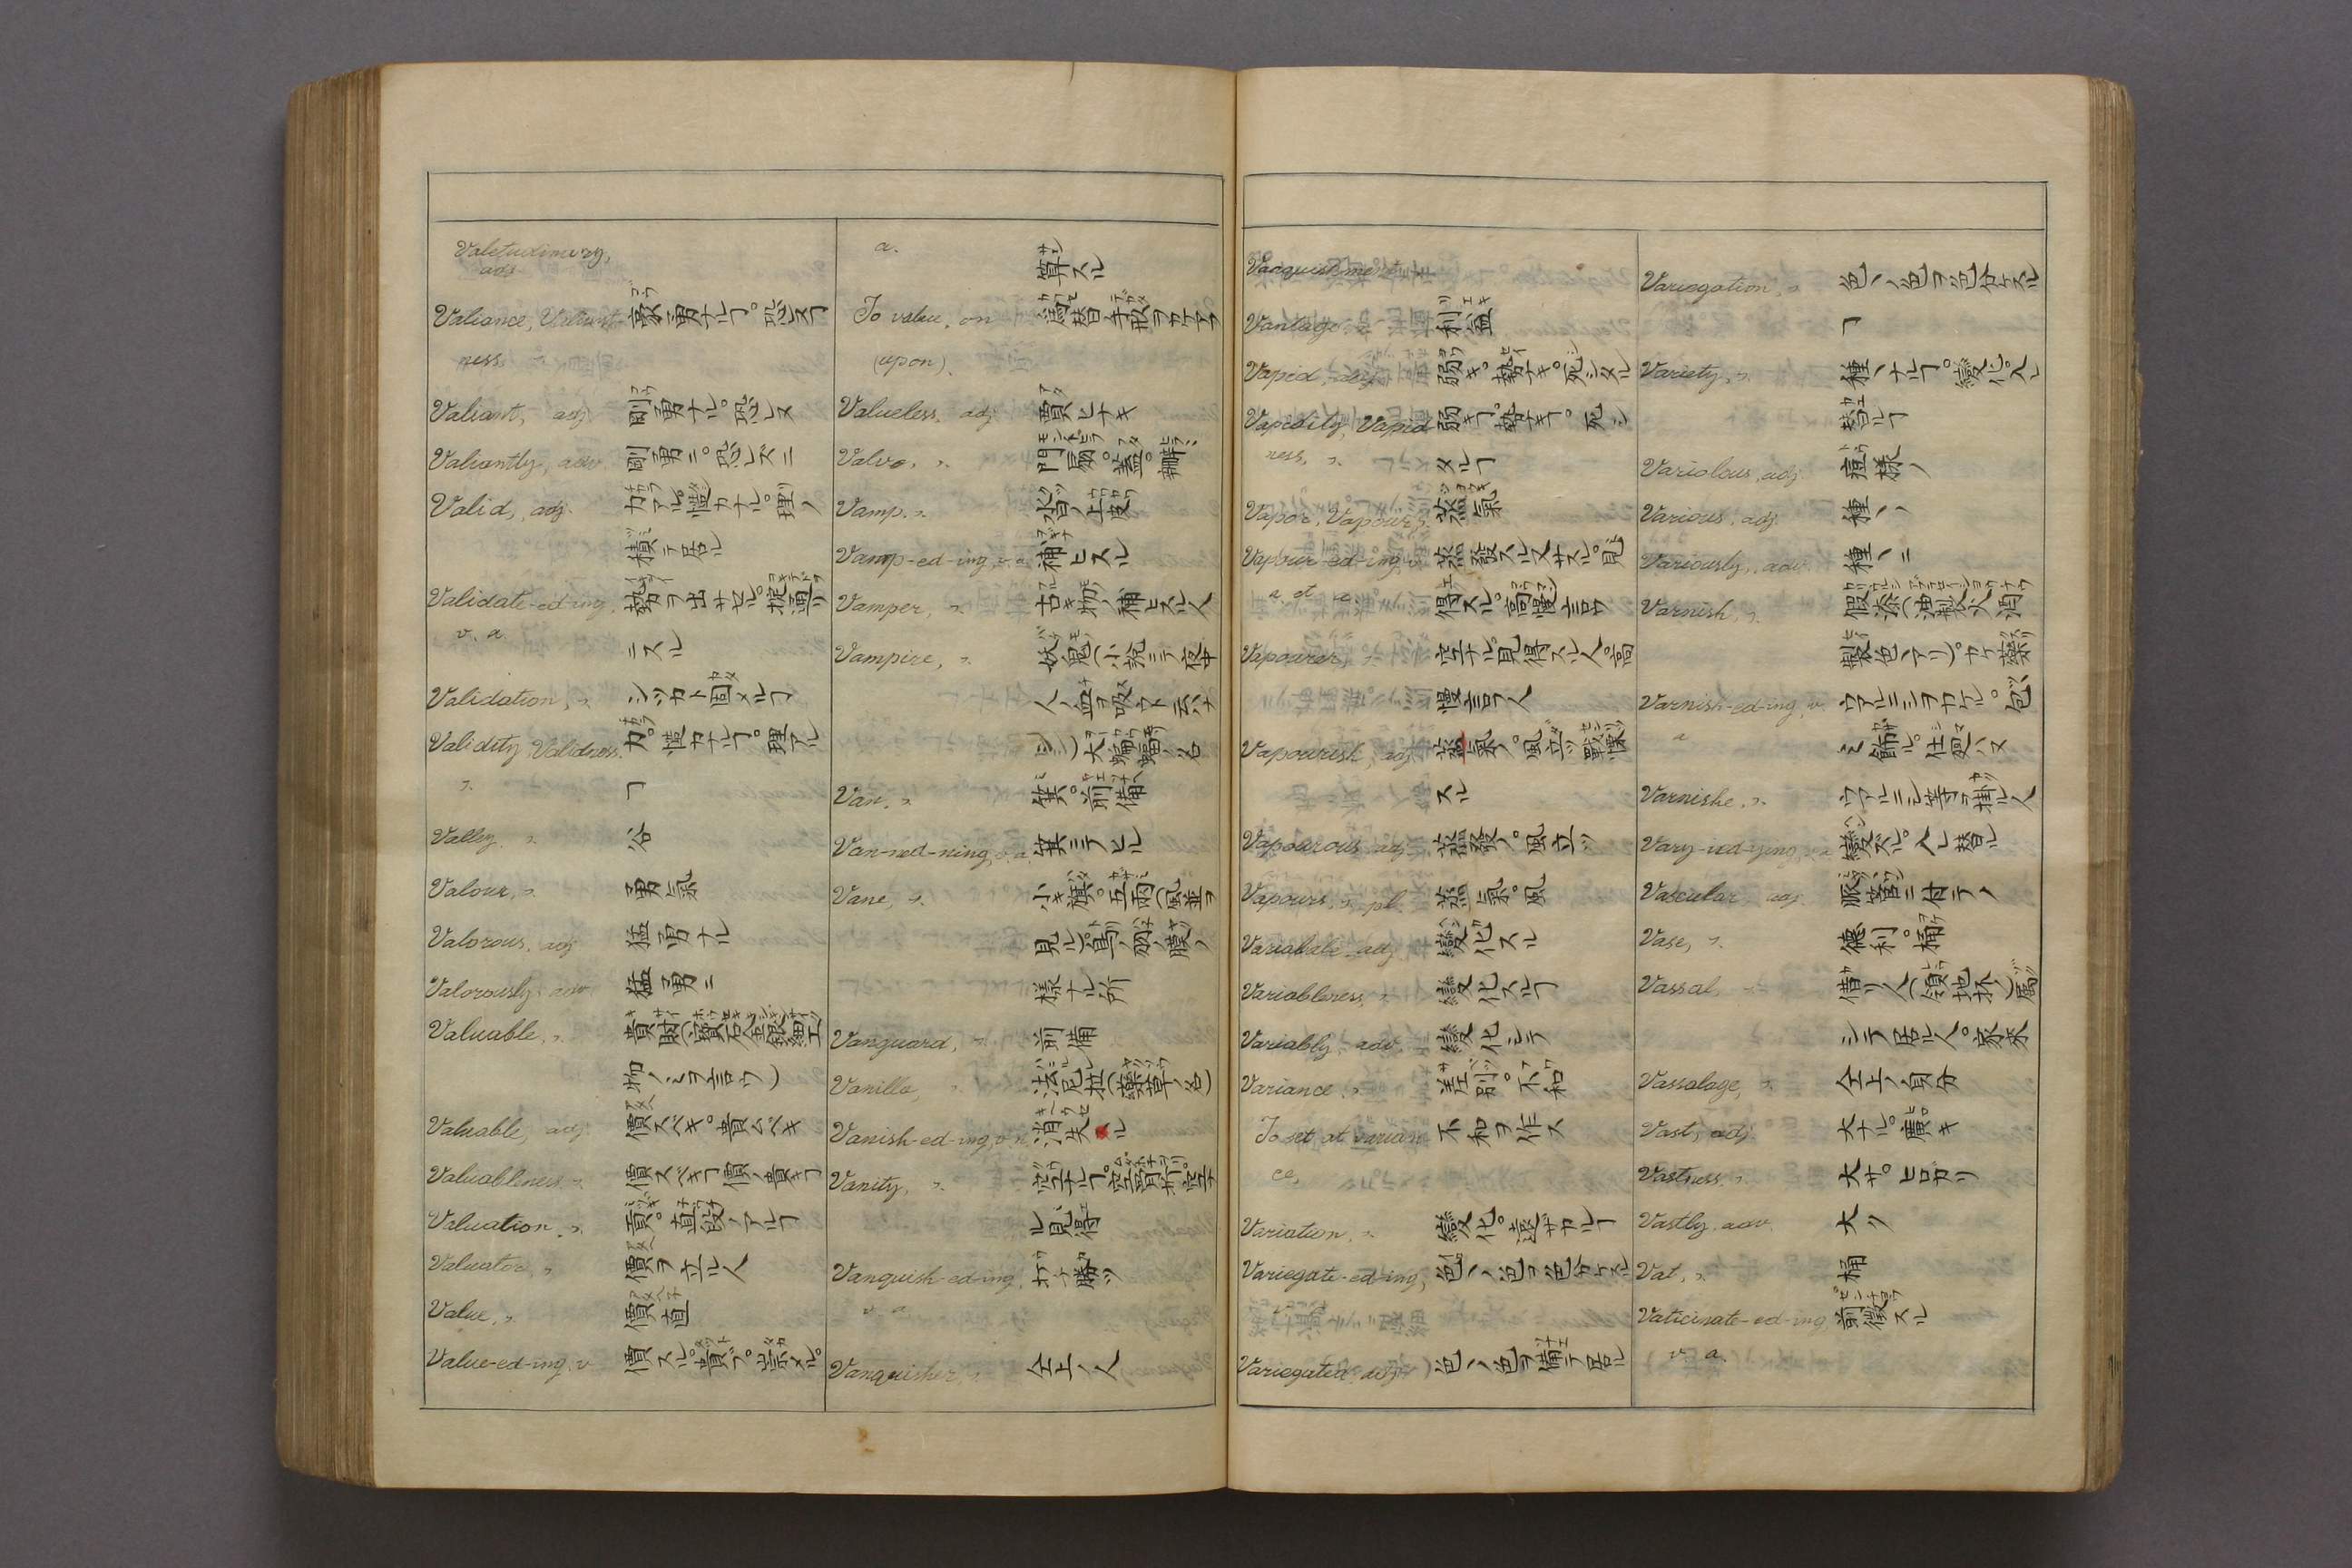 Valetudinary,
adj
Valiance, Valiant- 豪勇ナルヿ。恐レヌヿ
ness. s.
Valiant, adj 剛勇ナル。恐レヌ
Valiantly, adv 剛勇ニ。恐レズニ
Valid, adj. 力アル。慥カナル。理ノ
積テ居ル
Validate-ed-ing, 勢ヲ出サセル。掟通リ
v. a. ニスル
Validation, s. シッカト固メルヿ
Validity, Validness. 力。慥カナルヿ。理アル
s. ヿ
Valley, s. 谷
Valour, s. 勇氣
Valorous, adj 猛勇ナル
Valorously, adv 猛勇ニ
Valuable, s. 貴財(寶石金銀細工
物ノヿヲ言ウ)
Valuable, adj 價スベキ。貴ムベキ
Valuableness, s. 價スベキヿ價ノ貴キヿ
Valuation, s. 直段ノアルヿ
Valuator, s. 價ヲ立ル人
Value, s. 價直
Value-ed-ing, v 價スル。貴ブ。崇メル。
a. 算スル
To value, on 爲替手形ヲ
(upon).
Valueless, adj 價ヒナキ
Valve, s. 門扇。蓋。瓣
Vamp, s. 沓ノ上皮
Vamp-ed-ing, v. a. 補ヒスル
Vamper, s. 古キ物ノ補ヒスル人
Vampire, s. 妖鬼(小説ニテ夜中
人ノ血ヲ吸ウト云ハナ
シ)大蝙蝠ノ名
Van, s. 箕。前備
Van-ned-ning, v. a. 箕ニテヒル
Vane, s. 小キ旗。五兩(風並ヲ
見ル)鳥ノ羽ノ膜ノ
様ナル所
Vanguard, s. 前備
Vanilla, s. 法尼拉(藥草ノ名)
Vanish-ed-ing, v. n. 消失ル
Vanity, s. 空ナルヿ。
ル見得
Vanquish-ed-ing, 打チ勝ツ
v. a.
Vanquisher, s. 仝上ノ人
Vanquishment
Vantage, s. 利益
Vapid, adj 弱キ。勢ナキ。死シタル
Vapidity, Vapid- 弱キヿ。勢ナキヿ。死シ
ness, s. タルヿ
Vapor, Vapour, s. 蒸氣
Vapour-ed-ing, v. 蒸發スル又サスル。見
a. et n. 得スル。高慢言ウ
Vapourer, s. 空ナル見得スル人。高
慢言ウ人
Vapourish, adj 蒸氣ノ。風立ツ戰慄
スル
Vapourous, adj 蒸發ノ。風立ツ
Vapours, s. pl. 蒸氣。風
Variable, adj 變化スル
Variableness, s. 變化スルヿ
Variably, adv. 變化シテ
Variance, s. 差別。不和
To set at varian- 不和ヲ作ス
ce,
Variation, s. 變化。遠ザカルヿ
Variegate-ed-ing, 色々ノ色ヲ色分ケスル
v. a.
Variegated, adj 色々ノ色ヲ備テ居ル
Variegation, s. 色々ノ色ヲ色分ケスル
ヿ
Variety, s. 種々ナルヿ。變化。入レ
替ルヿ
Variolous, adj. 痘様ノ
Various, adj. 種々ノ
Variously, adv. 種々ニ
Varnish, s. 假漆(油製火酒
製色々アリ)。カケ藥
Varnish-ed-ing, v. ウアルニシヲカケル。包
a ミ飾ル。仕
Varnishe, s. ウアルニシ等ヲ掛ル人
Vary-ied-ying, v. a 變ズル。入レ替ル
Vascular, adj. 脈管ニ付テノ
Vase, s. 德利。桶
Vassal, s. 借リ人(領地抔ノ)属
シテ居ル人。家来
Vassalage, s. 仝上ノ身分
Vast, adj. 大ナル。廣キ
Vastness, s. 大サ。ヒロガリ
Vastly, adv. 大ク
Vat, s. 桶
Vaticinate-ed-ing, 前徴スル
v. a.